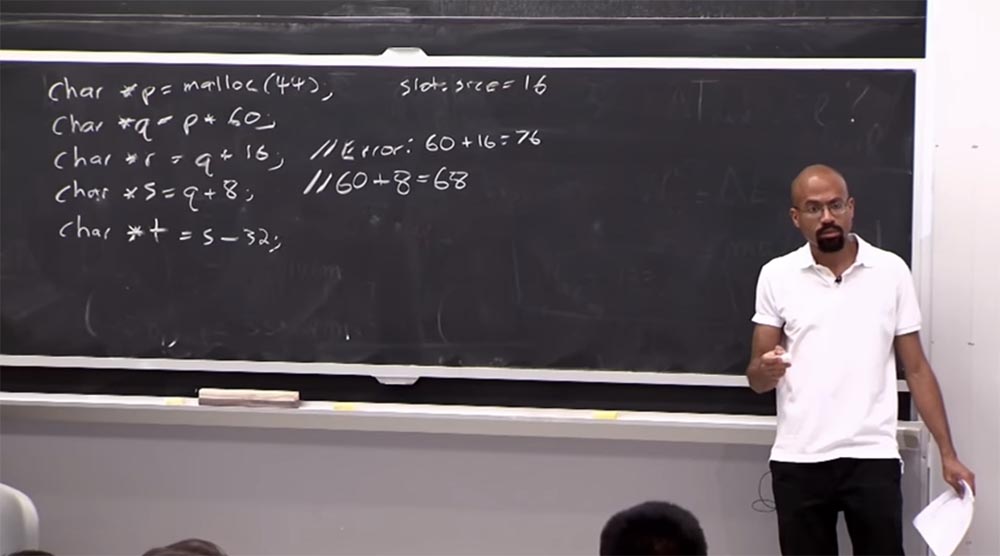 char *p = malloc(44);    slot.size = 16
char *q = p + 60;
char *r = q + 16;    // Error: 60+16=76
char *s = q+8;    // 60+8=68
char *t = s - 32;